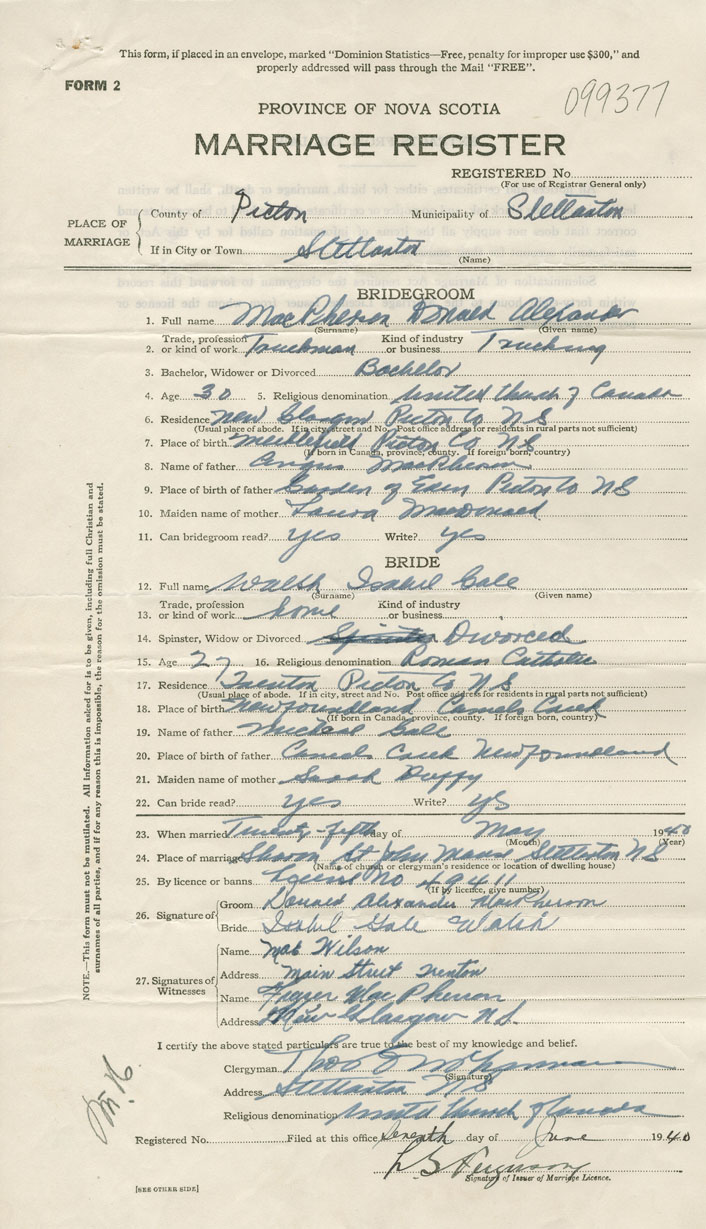 This form, if placed in an envelope, marked "Dominion Statistics—Free, penalty for improper use $300," and
properly addressed will pass through the Mail "FREE".
FORM 2
099377
PROVINCE OF NOVA SCOTIA
MARRIAGE REGISTER
REGISTERED No.
(For use of Registrar General only)
PLACE OF MARRIAGE
County of Pictou Municipality of Stellarton
If in City or Town Stellarton
(Name)
BRIDEGROOM
1. Full name MacPherson Donald Alexander
(Surname) (Given name)
2. Trade, profession or kind of work Truckman Kind of industry or business Trucking
3. Bachelor, Widower or Divorced Bachelor
4. Age 30 5. Religious denomination United Church of Canada
6. Residence New Glasgow Pictou Co NS
(Usual place of abode. If in city, street and No. Post office address for residents in rural parts not sufficient)
7. Place of birth Pictou Co NS
(If born in Canada, province, county. If foreign born, country)
8. Name of father Angus MacPherson
9. Place of birth of father Garden of Eden Pictou Co NS
10. Maiden name of mother Laura MacDonald
11. Can bridegroom read? yes Write? yes
BRIDE
12. Full name Walsh Isabel Gale
(Surname) (Given name)
13. Trade, profession or kind of work home Kind of industry or business
14. Spinster, Widow or Divorced Spinster Divorced
15. Age 27 16. Religious denomination Roman Catholic
17. Residence Trenton Pictou Co NS
(Usual place of abode. If in city, street and No. Post office address for residents in rural parts not sufficient)
18. Place of birth Newfoundland
(If born in Canada, province, county. If foreign born, country)
19. Name of father Michael Gale
20. Place of birth of father Newfoundland
21. Maiden name of mother Sarah Duffy
22. Can bride read? yes Write? yes
23. When married Twenty-fifth day of May 1940
(Month) (Year)
24. Place of marriage Sharon St John Manse Stellarton NS
(Name of church or clergyman's residence or location of dwelling house)
25. By licence or banns License No 49411
(If by licence, give number)
26. Signature of
Groom Donald Alexander MacPherson
Bride Isabel Gale Walsh
27. Signatures of Witnesses
Name Wilson
Address Main Street Trenton
Name Frazer MacPherson
Address New Glasgow N.S.
I certify the above stated particulars are true to the best of my knowledge and belief.
Clergyman Thos
(Signature)
Address Stellarton NS
Religious denomination United Church of Canada
Registered No. Filed at this office Seventh day of June 1940
L G Ferguson
Signature of Issuer of Marriage Licence.
[SEE OTHER SIDE]
NOTE.—This form must not be mutilated. All information asked for is to be given, including full Christian and
surnames of all parties, and if for any reason this is impossible, the reason for the omission must be stated.